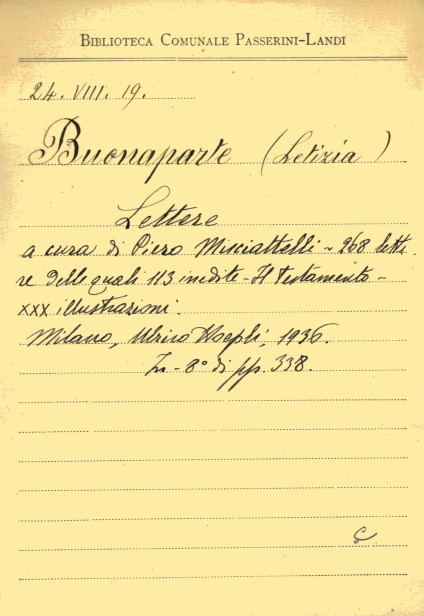 BIBLIOTECA COMUNALE PASSERINI-LANDI
24. VIII. 19.
Buonaparte (Letizia)
Lettere
a cura di Piero Misciattelli - 268 lette
re delle quali 113 inedite - Il Testamento -
XXX illustrazioni.
Milano, Ulrico Hoepli, 1936.
In - 8° di pp. 338.